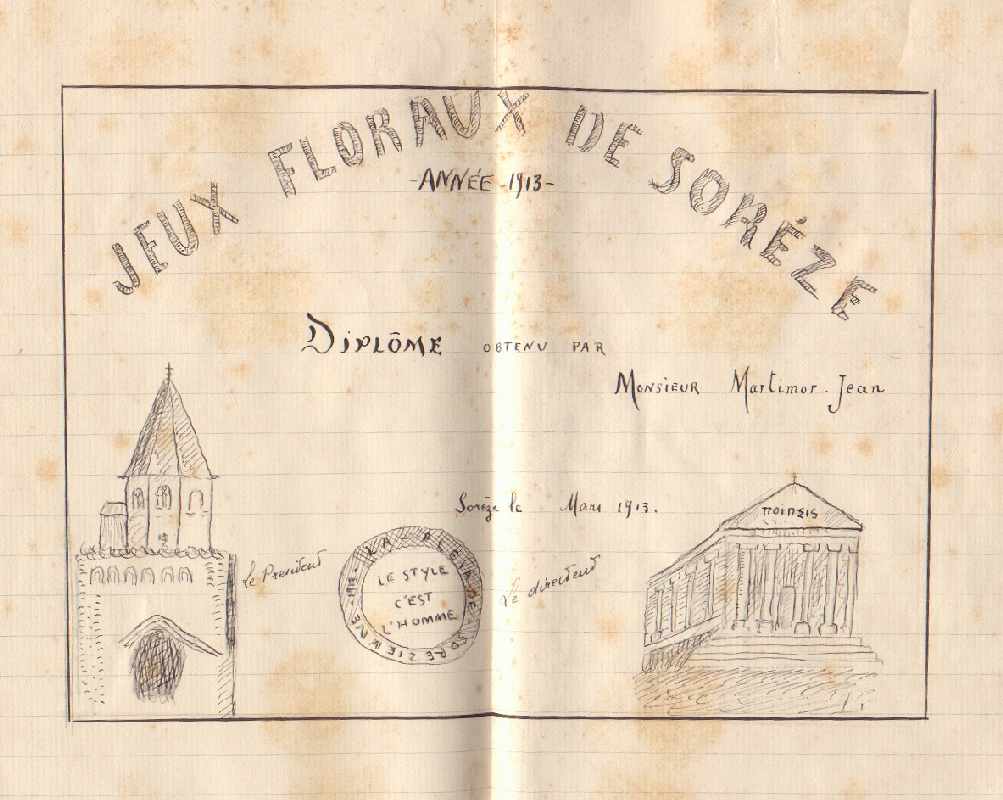 JEUX FLORAUX DE SORÉZE
-ANNÉE-1913-
DIPLÔME OBTENU PAR
MONSIEUR Martimor. Jean
Sorèze le Mars 1913.
ΠΟΙΗΣΙΣ
Le President
LA PLEIADE SOREZIENNE - 1913 -
LE STYLE
C'EST
L'HOMME
Le directeur